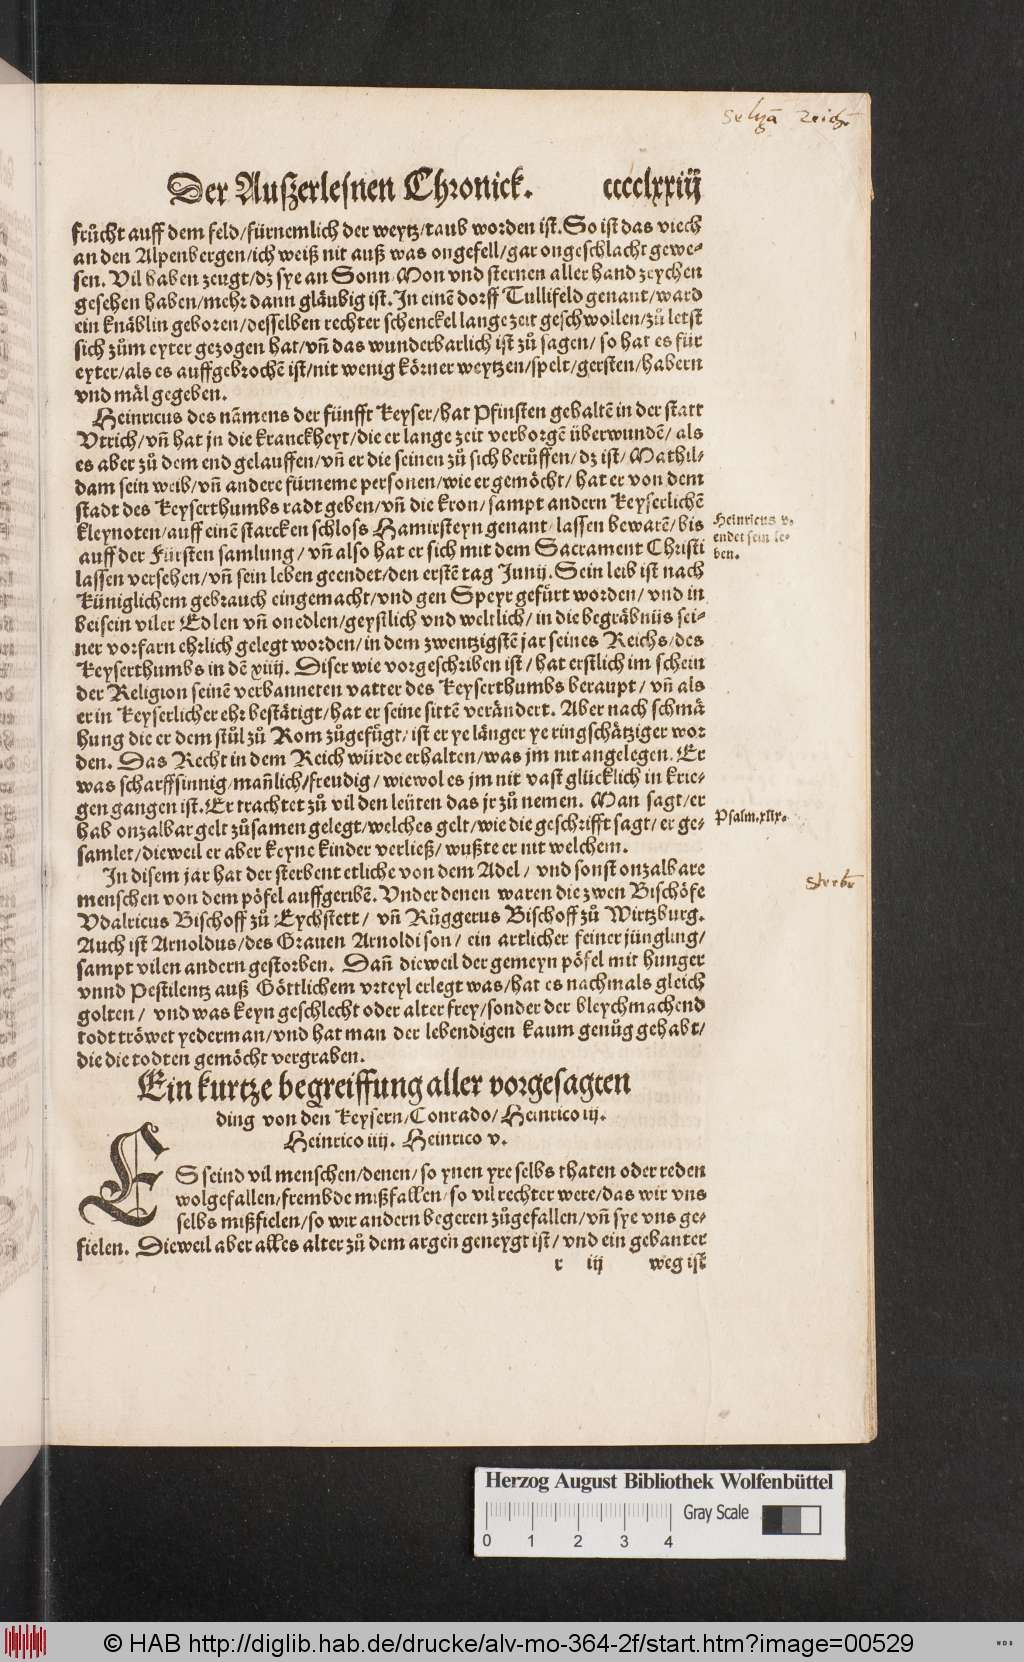 Der Außerlesnen Chronick. cccclxxiij
frůcht auff dem feld/fürnemlich der weytz/taub worden ist. So ist das viech
an den Alpenbergen/ich weiß nit auß was ongefell/gar ongeschlacht gewe-
sen. Vil haben zeugt/dz sye an Sonn Mon vnd sternen aller hand zeychen
gesehen haben/mehr dann gläubig ist. In einē dorff Tullifeld genant/ward
ein knäblin geboren/desselben rechter schenckel lange zeit geschwollen/zů letst
sich zům eyter gezogen hat/vñ das wunderbarlich ist zů sagen/ so hat es für
eyter/als es auffgebrochē ist/nit wenig körner weytzen/spelt/gersten/habern
vnd mäl gegeben.
Heinricus des nāmens der fünfft Keyser/hat Pfinsten gehaltē in der statt
Vtrich/vñ hat jn die kranckheyt/die er lange zeit verborgē überwundē/als
es aber zů dem end gelauffen/vñ er die seinen zů sich berůffen/dz ist/Mathil-
dam sein weib/vñ andere fürneme personen/wie er gemöcht/hat er von dem
stadt des Keyserthumbs radt geben/vñ die kron/sampt andern Keyserlichē
kleynoten/auff einē starcken schloss Hamirsteyn genant/lassen bewarē/bis
auff der Fürsten samlung/ vñ also hat er sich mit dem Sacrament Christi
lassen versehen/vñ sein leben geendet/den erstē tag Junij. Sein leib ist nach
Küniglichem gebrauch eingemacht/vnd gen Speyr gefůrt worden/vnd in
beisein viler Edlen vñ onedlen/geystlich vnd weltlich/in die begräbniis sei-
ner vorfarn ehrlich gelegt worden/in dem zwentzigstē jar seines Reichs/des
Keyserthumbs in dē xiiij. Diser wie vorgeschriben ist/hat erstlich im schein
der Religion seinē verbanneten vatter des Keyserthumbs beraupt/ vñ als
er in Keyserlicher ehr bestätigt/hat er seine sittē verändert. Aber nach schmä
hung die er dem stůl zů Rom zůgefůgt/ist er ye länger ye ringschätziger wor
den. Das Recht in dem Reich würde erhalten/was jm nit angelegen. Er
was scharffsinnig/mañlich/freudig/wiewol es jm nit vast glücklich in krie-
gen gangen ist. Er trachtet zů vil den leüten das jr zů nemen. Man sagt/er
hab onzalbar gelt zůsamen gelegt/welches gelt/wie die geschrifft sagt/er ge-
samlet/dieweil er aber keyne kinder verließ/wußte er nit welchem.
In disem jar hat der sterbent etliche von dem Adel/ vnd sonst onzalbare
menschen von dem pöfel auffgeribē. Vnder denen waren die zwen Bischöfe
Vdalricus Bischoff zů Eychstett/ vñ Rüggerus Bischoff zů Wirtzburg.
Auch ist Arnoldus/des Grauen Arnoldi son/ ein artlicher feiner jüngling/
sampt vilen andern gestorben. Dañ dieweil der gemeyn pöfel mit hunger
vnnd Pestilentz auß Göttlichem vrteyl erlegt was/hat es nachmals gleich
golten/ vnd was keyn geschlecht oder alter frey/sonder der bleychmachend
todt tröwet yederman/vnd hat man der lebendigen kaum genůg gehabt/
die die todten gemöcht vergraben.
Heinricus v.
endet sein le-
ben.
Psalm.xlix.
Ein kurtze begreiffung aller vorgesagten
ding von den Keysern/Conrado/Heinrico iij.
Heinrico iiij. Heinrico v.
ES seind vil menschen/denen/so ynen yre selbs thaten oder reden
wolgefallen/frembde mißfallen/so vil rechter were/das wir vns
selbs mißfielen/so wir andern begeren zůgefallen/vñ sye vns ge-
fielen. Dieweil aber alles alter zů dem argen geneygt ist/ vnd ein gebanter
r iij weg ist
Herzog August Bibliothek Wolfenbüttel
Gray Scale
0 1 2 3 4
© HAB http://diglib.hab.de/drucke/alv-mo-364-2f/start.htm?image=00529